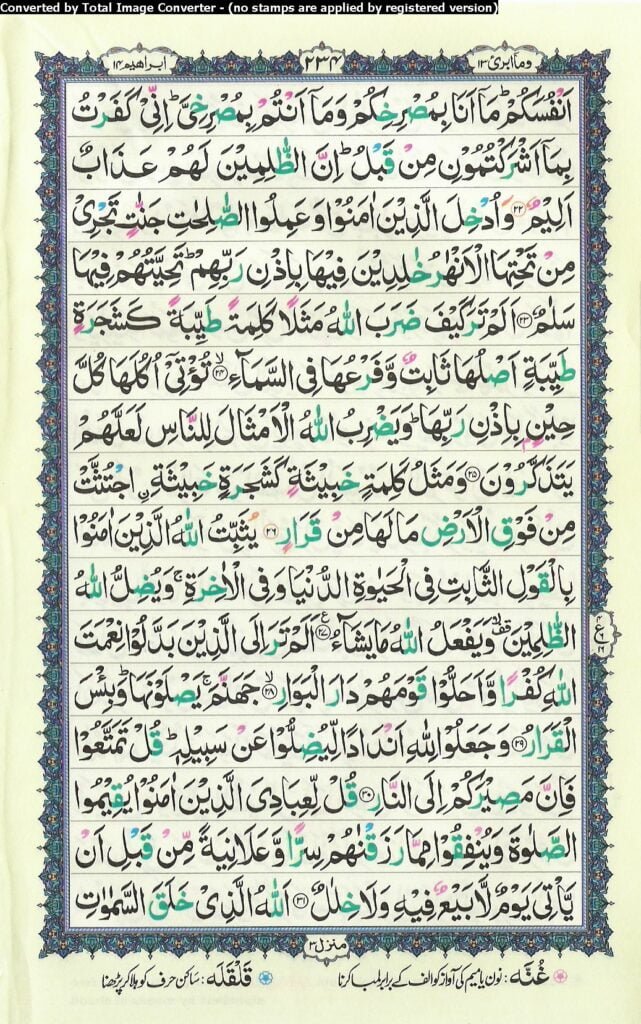 Converted by Total Image Converter - (no stamps are applied by registered version)
وما ابرئ ١٣
٢٣٤
ابراهيم ١٤
اَنْفُسَكُمْ ؕ مَاۤ اَنَا بِمُصْرِخِكُمْ وَمَاۤ اَنْتُمْ بِمُصْرِخِیَّ ؕ اِنِّیْ كَفَرْتُ
بِمَاۤ اَشْرَكْتُمُوْنِ مِنْ قَبْلُ ؕ اِنَّ الظّٰلِمِیْنَ لَهُمْ عَذَابٌ
اَلِیْمٌ ﴿۲۲﴾ وَاُدْخِلَ الَّذِیْنَ اٰمَنُوْا وَعَمِلُوا الصّٰلِحٰتِ جَنّٰتٍ تَجْرِیْ
مِنْ تَحْتِهَا الْاَنْهٰرُ خٰلِدِیْنَ فِیْهَا بِاِذْنِ رَبِّهِمْ ؕ تَحِیَّتُهُمْ فِیْهَا
سَلٰمٌ ﴿۲۳﴾ اَلَمْ تَرَ كَیْفَ ضَرَبَ اللّٰهُ مَثَلًا كَلِمَةً طَیِّبَةً كَشَجَرَةٍ
طَیِّبَةٍ اَصْلُهَا ثَابِتٌ وَّفَرْعُهَا فِی السَّمَآءِ ۙ﴿۲۴﴾ تُؤْتِیْۤ اُكُلَهَا كُلَّ
حِیْنٍۭ بِاِذْنِ رَبِّهَا ؕ وَیَضْرِبُ اللّٰهُ الْاَمْثَالَ لِلنَّاسِ لَعَلَّهُمْ
یَتَذَكَّرُوْنَ ﴿۲۵﴾ وَمَثَلُ كَلِمَةٍ خَبِیْثَةٍ كَشَجَرَةٍ خَبِیْثَةِ ِ۟اجْتُثَّتْ
مِنْ فَوْقِ الْاَرْضِ مَا لَهَا مِنْ قَرَارٍ ﴿۲۶﴾ یُثَبِّتُ اللّٰهُ الَّذِیْنَ اٰمَنُوْا
بِالْقَوْلِ الثَّابِتِ فِی الْحَیٰوةِ الدُّنْیَا وَفِی الْاٰخِرَةِ ۚ وَیُضِلُّ اللّٰهُ
الظّٰلِمِیْنَ ۙ۫ وَیَفْعَلُ اللّٰهُ مَا یَشَآءُ ﴿۲۷﴾ اَلَمْ تَرَ اِلَی الَّذِیْنَ بَدَّلُوْا نِعْمَتَ
اللّٰهِ كُفْرًا وَّاَحَلُّوْا قَوْمَهُمْ دَارَ الْبَوَارِ ۙ﴿۲۸﴾ جَهَنَّمَ ۚ یَصْلَوْنَهَا ؕ وَبِئْسَ
الْقَرَارُ ﴿۲۹﴾ وَجَعَلُوْا لِلّٰهِ اَنْدَادًا لِّیُضِلُّوْا عَنْ سَبِیْلِهٖ ؕ قُلْ تَمَتَّعُوْا
فَاِنَّ مَصِیْرَكُمْ اِلَی النَّارِ ﴿۳۰﴾ قُلْ لِّعِبَادِیَ الَّذِیْنَ اٰمَنُوْا یُقِیْمُوا
الصَّلٰوةَ وَیُنْفِقُوْا مِمَّا رَزَقْنٰهُمْ سِرًّا وَّعَلَانِیَةً مِّنْ قَبْلِ اَنْ
یَّاْتِیَ یَوْمٌ لَّا بَیْعٌ فِیْهِ وَلَا خِلٰلٌ ﴿۳۱﴾ اَللّٰهُ الَّذِیْ خَلَقَ السَّمٰوٰتِ
منزل ٣
غُنَّه: نون یا میم کی آواز کو الف کے برابر لمبا کرنا
قَلْقَلَه: ساکن حرف کو ہلا کر پڑھنا